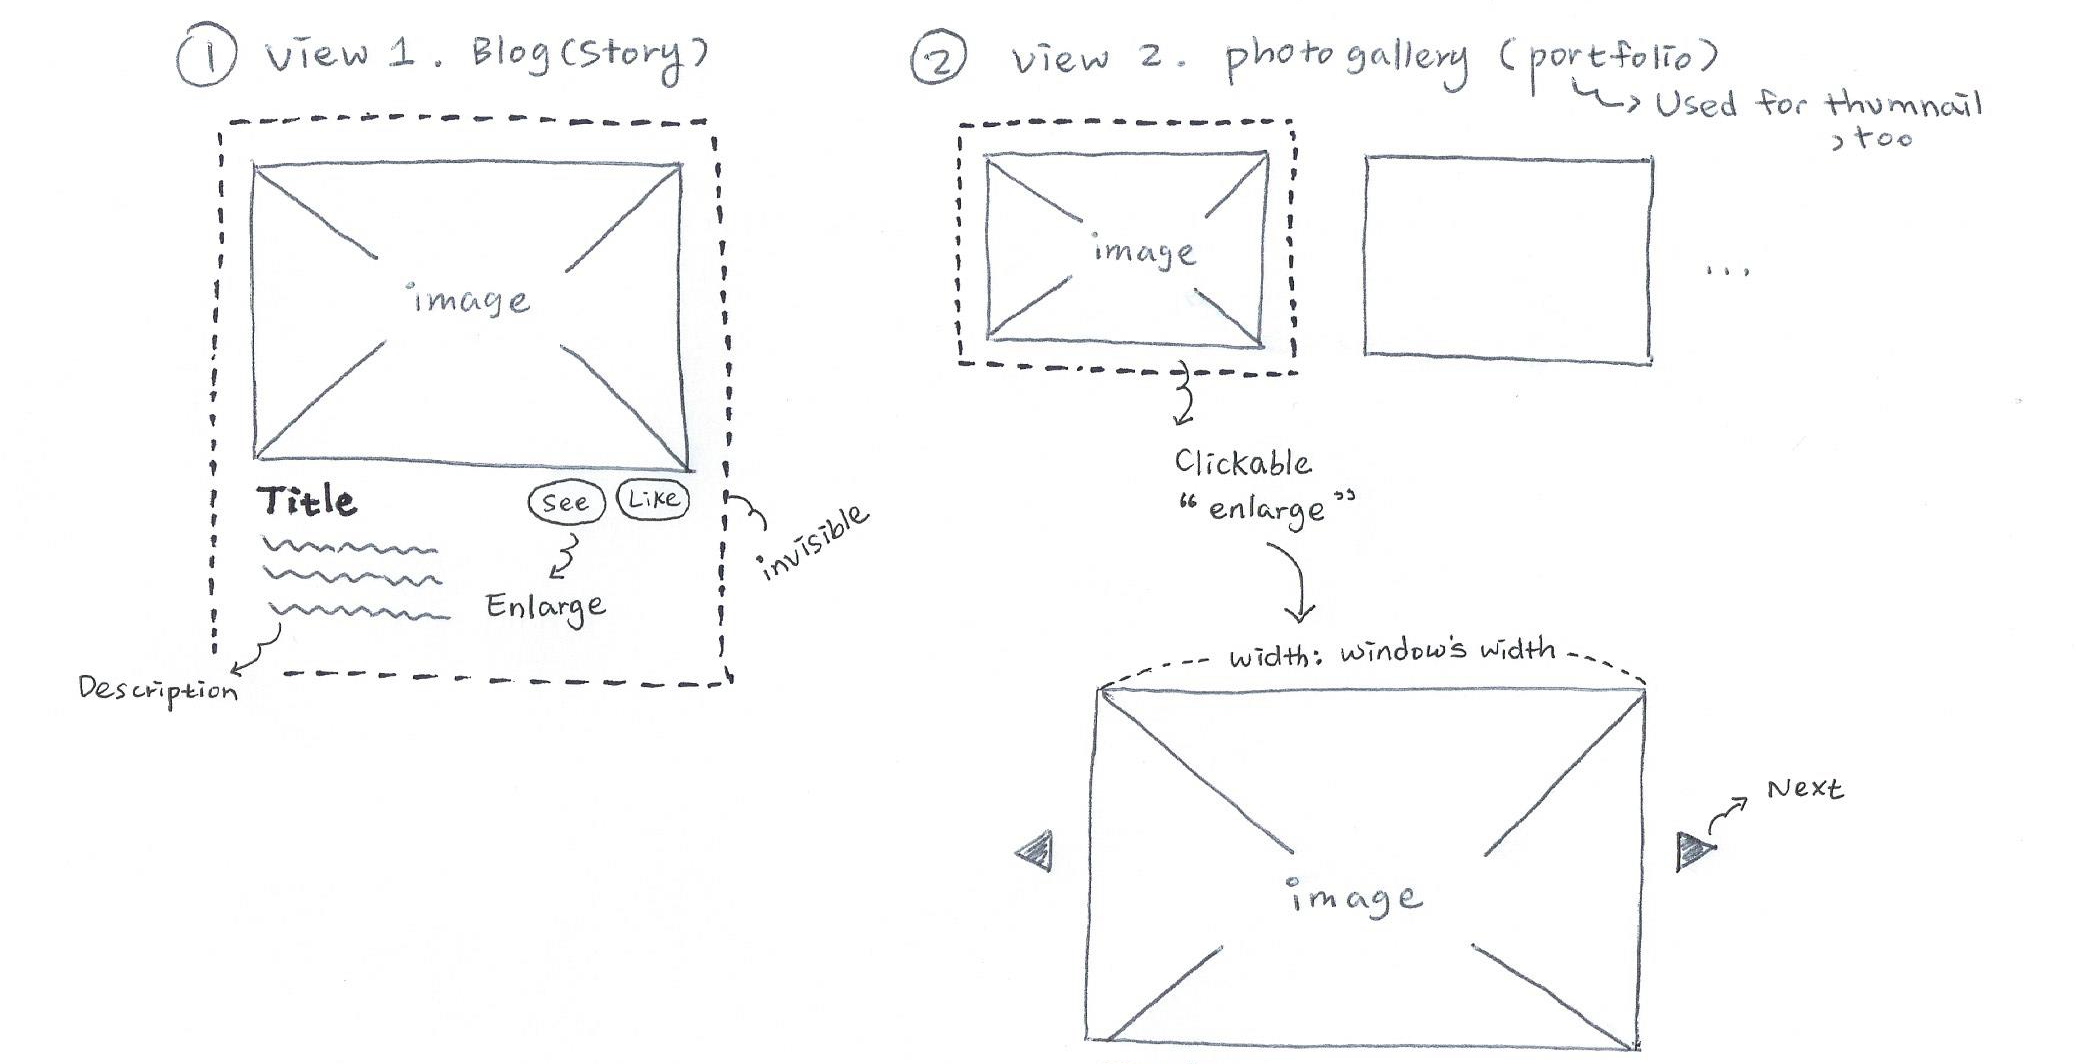 ① View 1. Blog(Story)
image
Title
See
Like
Enlarge
Description
invisible
② View 2. photo gallery (portfolio)
Used for thumnail
, too
image
...
Clickable
“enlarge”
width: window's width
image
Next